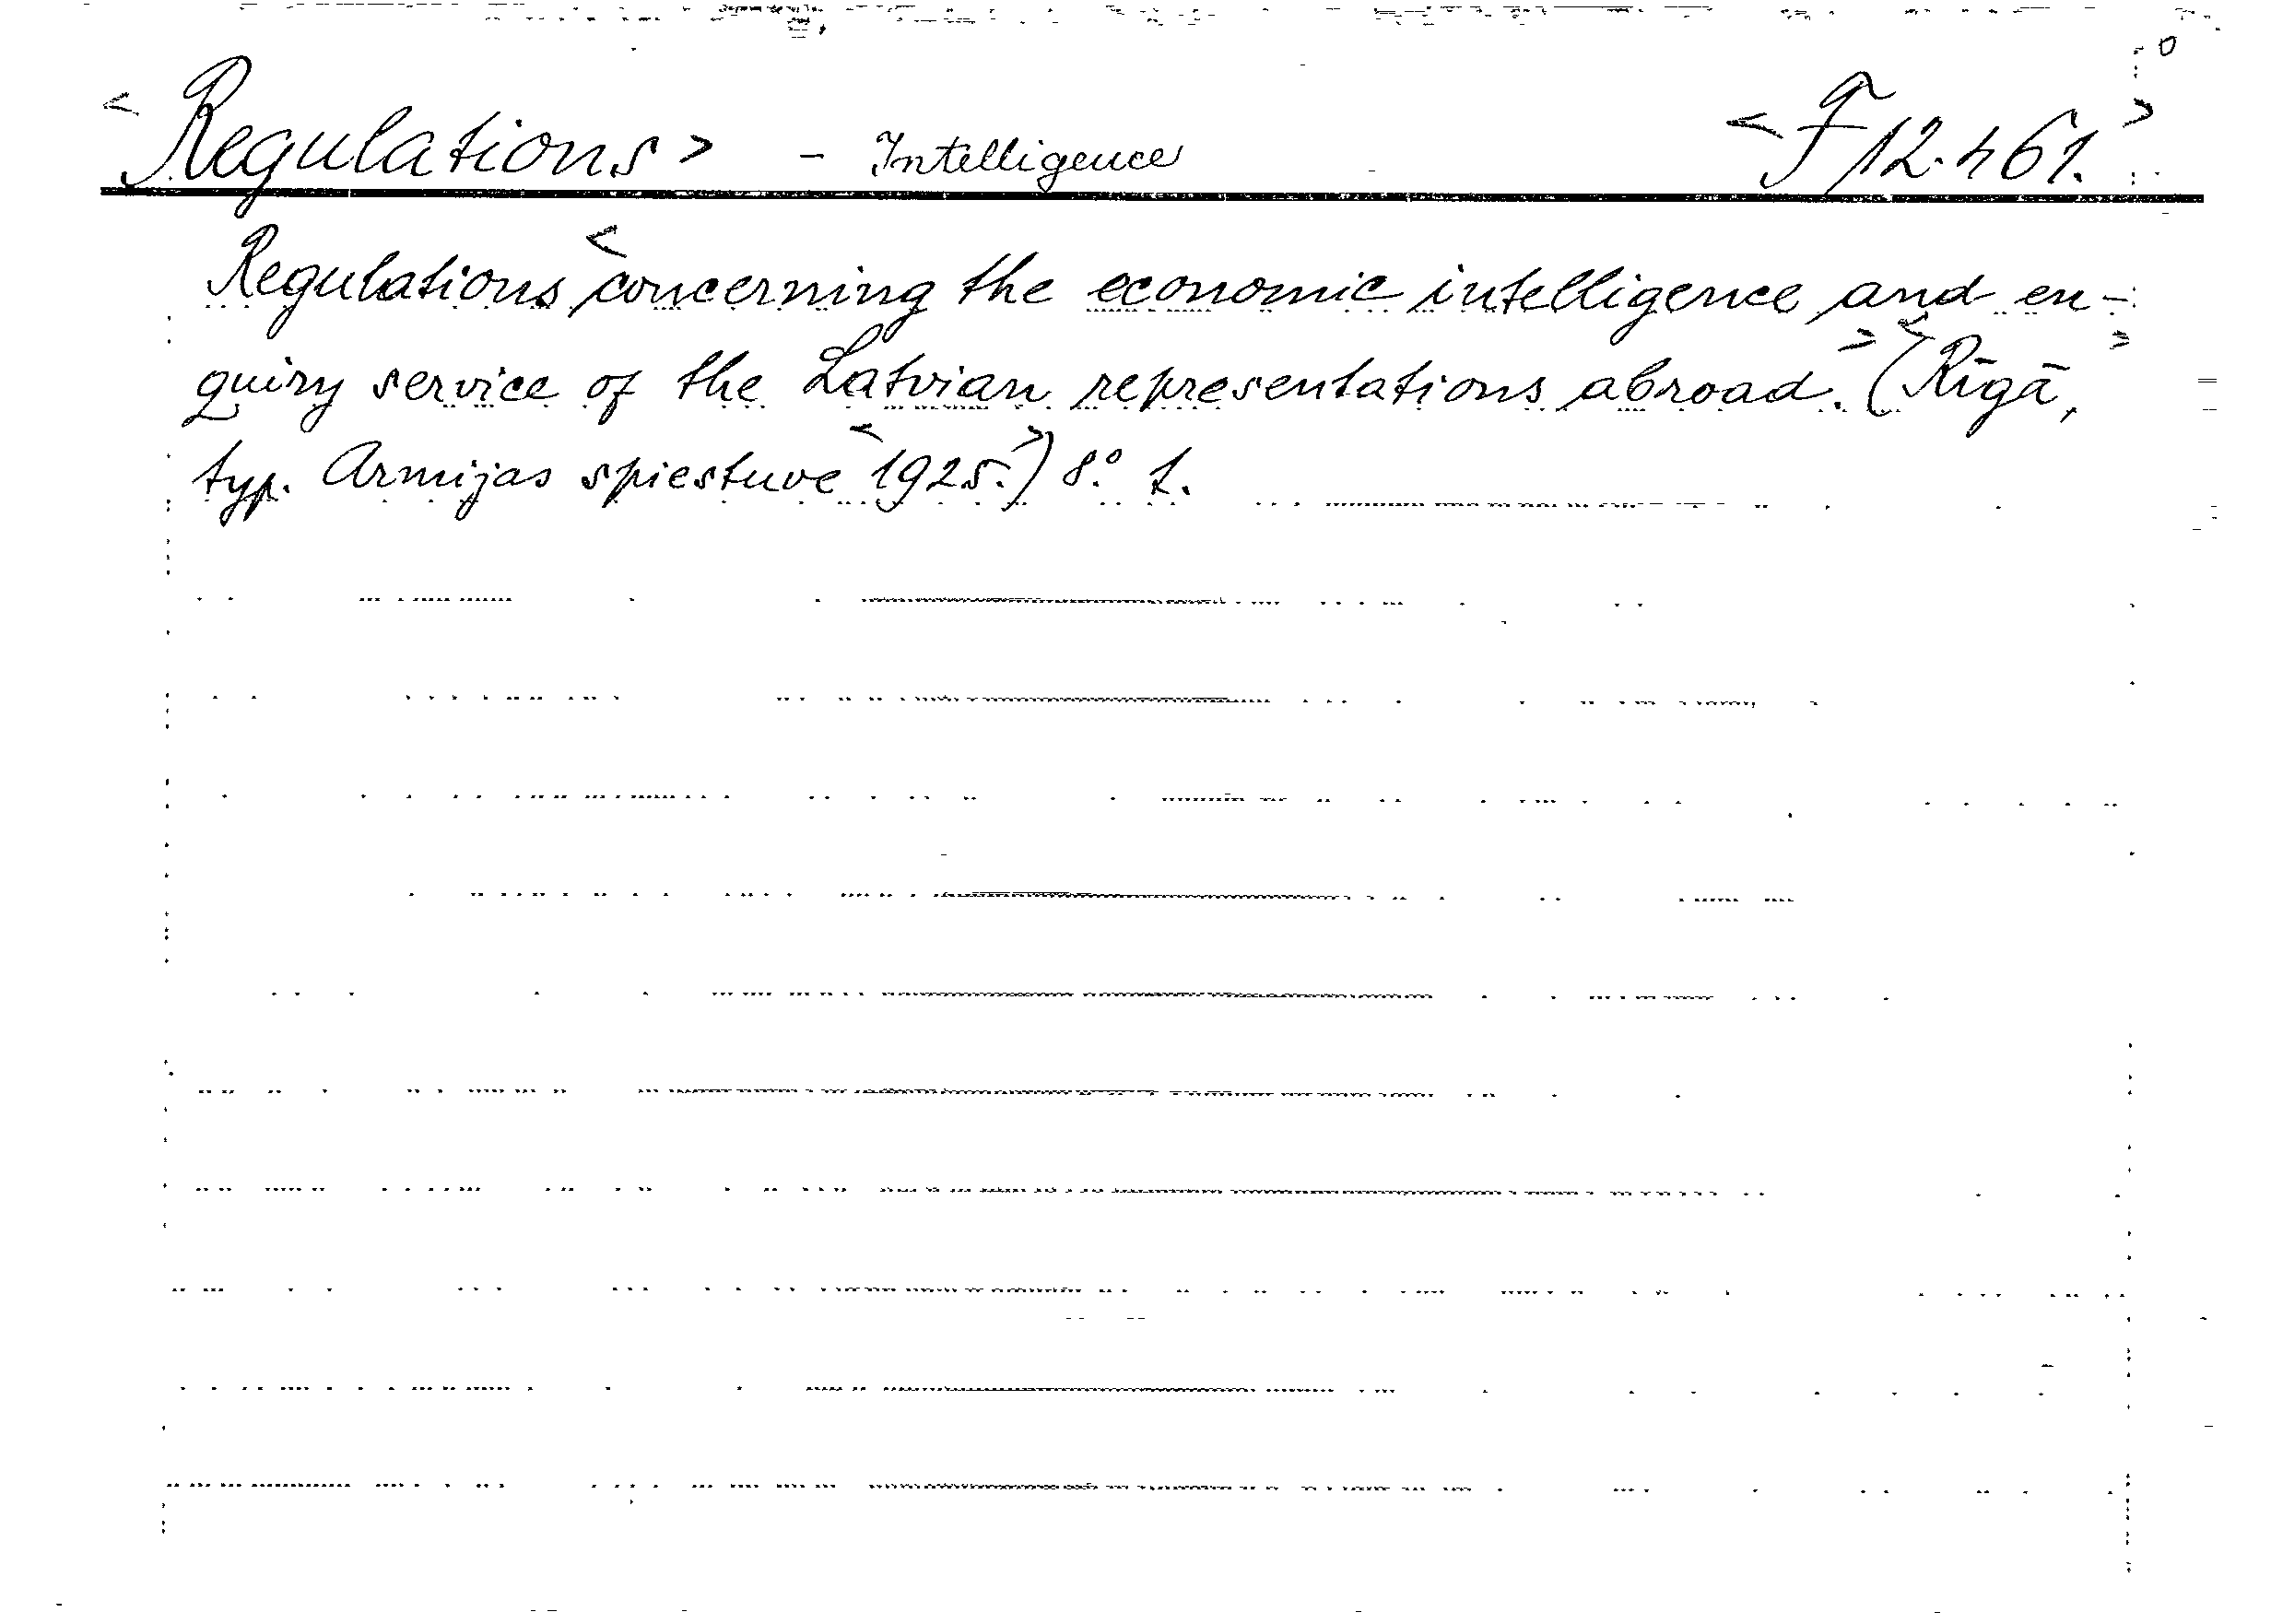 < Regulations > - Intelligence < F 12.461. >
Regulations < concerning the economic intelligence and en-
quiry service of the Latvian representations abroad. > (< Rīgā, >
typ. Armijas spiestuve < 1925. >) 8.° 1.